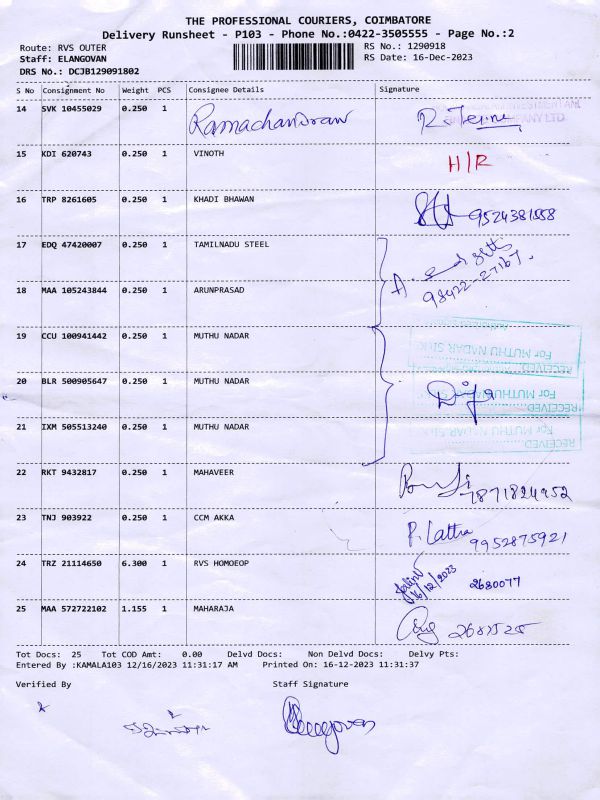 THE PROFESSIONAL COURIERS, COIMBATORE
Delivery Runsheet - P103 - Phone No.:0422-3505555 - Page No.:2
Route: RVS OUTER RS No.: 1290918
Staff: ELANGOVAN RS Date: 16-Dec-2023
DRS No.: DCJB129091802
S No Consignment No Weight PCS Consignee Details Signature
14 SVK 10455029 0.250 1 Ramachandran
15 KDI 620743 0.250 1 VINOTH H/R
16 TRP 8261605 0.250 1 KHADI BHAWAN 9524381558
17 EDQ 47420007 0.250 1 TAMILNADU STEEL
18 MAA 105243844 0.250 1 ARUNPRASAD 98422-27167.
19 CCU 100941442 0.250 1 MUTHU NADAR
For MUTHU NADAR
RECEIVED
20 BLR 500905647 0.250 1 MUTHU NADAR
For MUTHU
RECEIVED
21 IXM 505513240 0.250 1 MUTHU NADAR
For MUTHU NADAR
RECEIVED
22 RKT 9432817 0.250 1 MAHAVEER 7871824952
23 TNJ 903922 0.250 1 CCM AKKA P. Latha 9952875921
24 TRZ 21114650 6.300 1 RVS HOMOEOP 16/12/2023 2680077
25 MAA 572722102 1.155 1 MAHARAJA
Tot Docs: 25 Tot COD Amt: 0.00 Delvd Docs: Non Delvd Docs: Delvy Pts:
Entered By :KAMALA103 12/16/2023 11:31:17 AM Printed On: 16-12-2023 11:31:37
Verified By Staff Signature